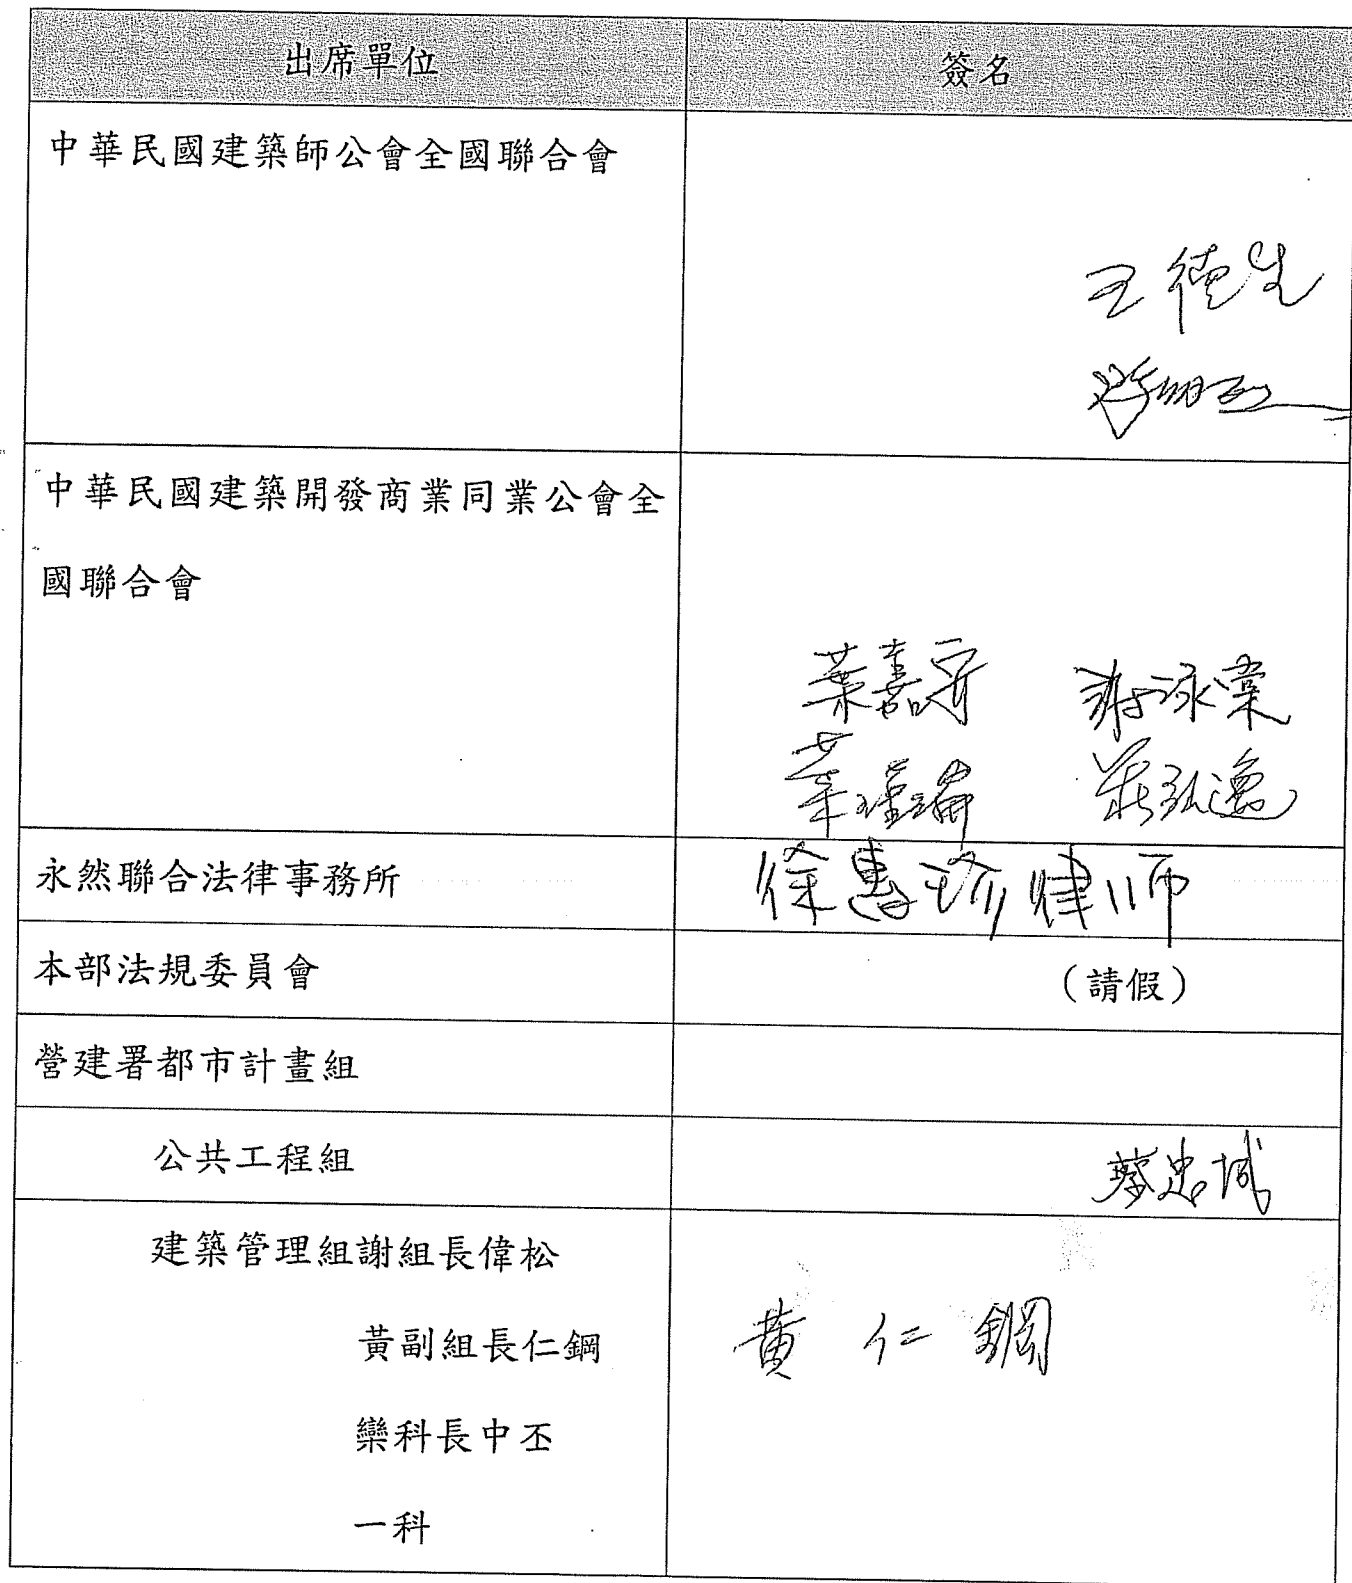 出席單位
簽名
中華民國建築師公會全國聯合會
王德生
中華民國建築開發商業同業公會全
國聯合會
葉嘉守 游泳棠
葉瑾瑜 莊弘逸
永然聯合法律事務所
徐惠珍律師
本部法規委員會
（請假）
營建署都市計畫組
公共工程組
蔡忠城
建築管理組謝組長偉松
黃副組長仁鋼
黃仁鋼
欒科長中丕
一科